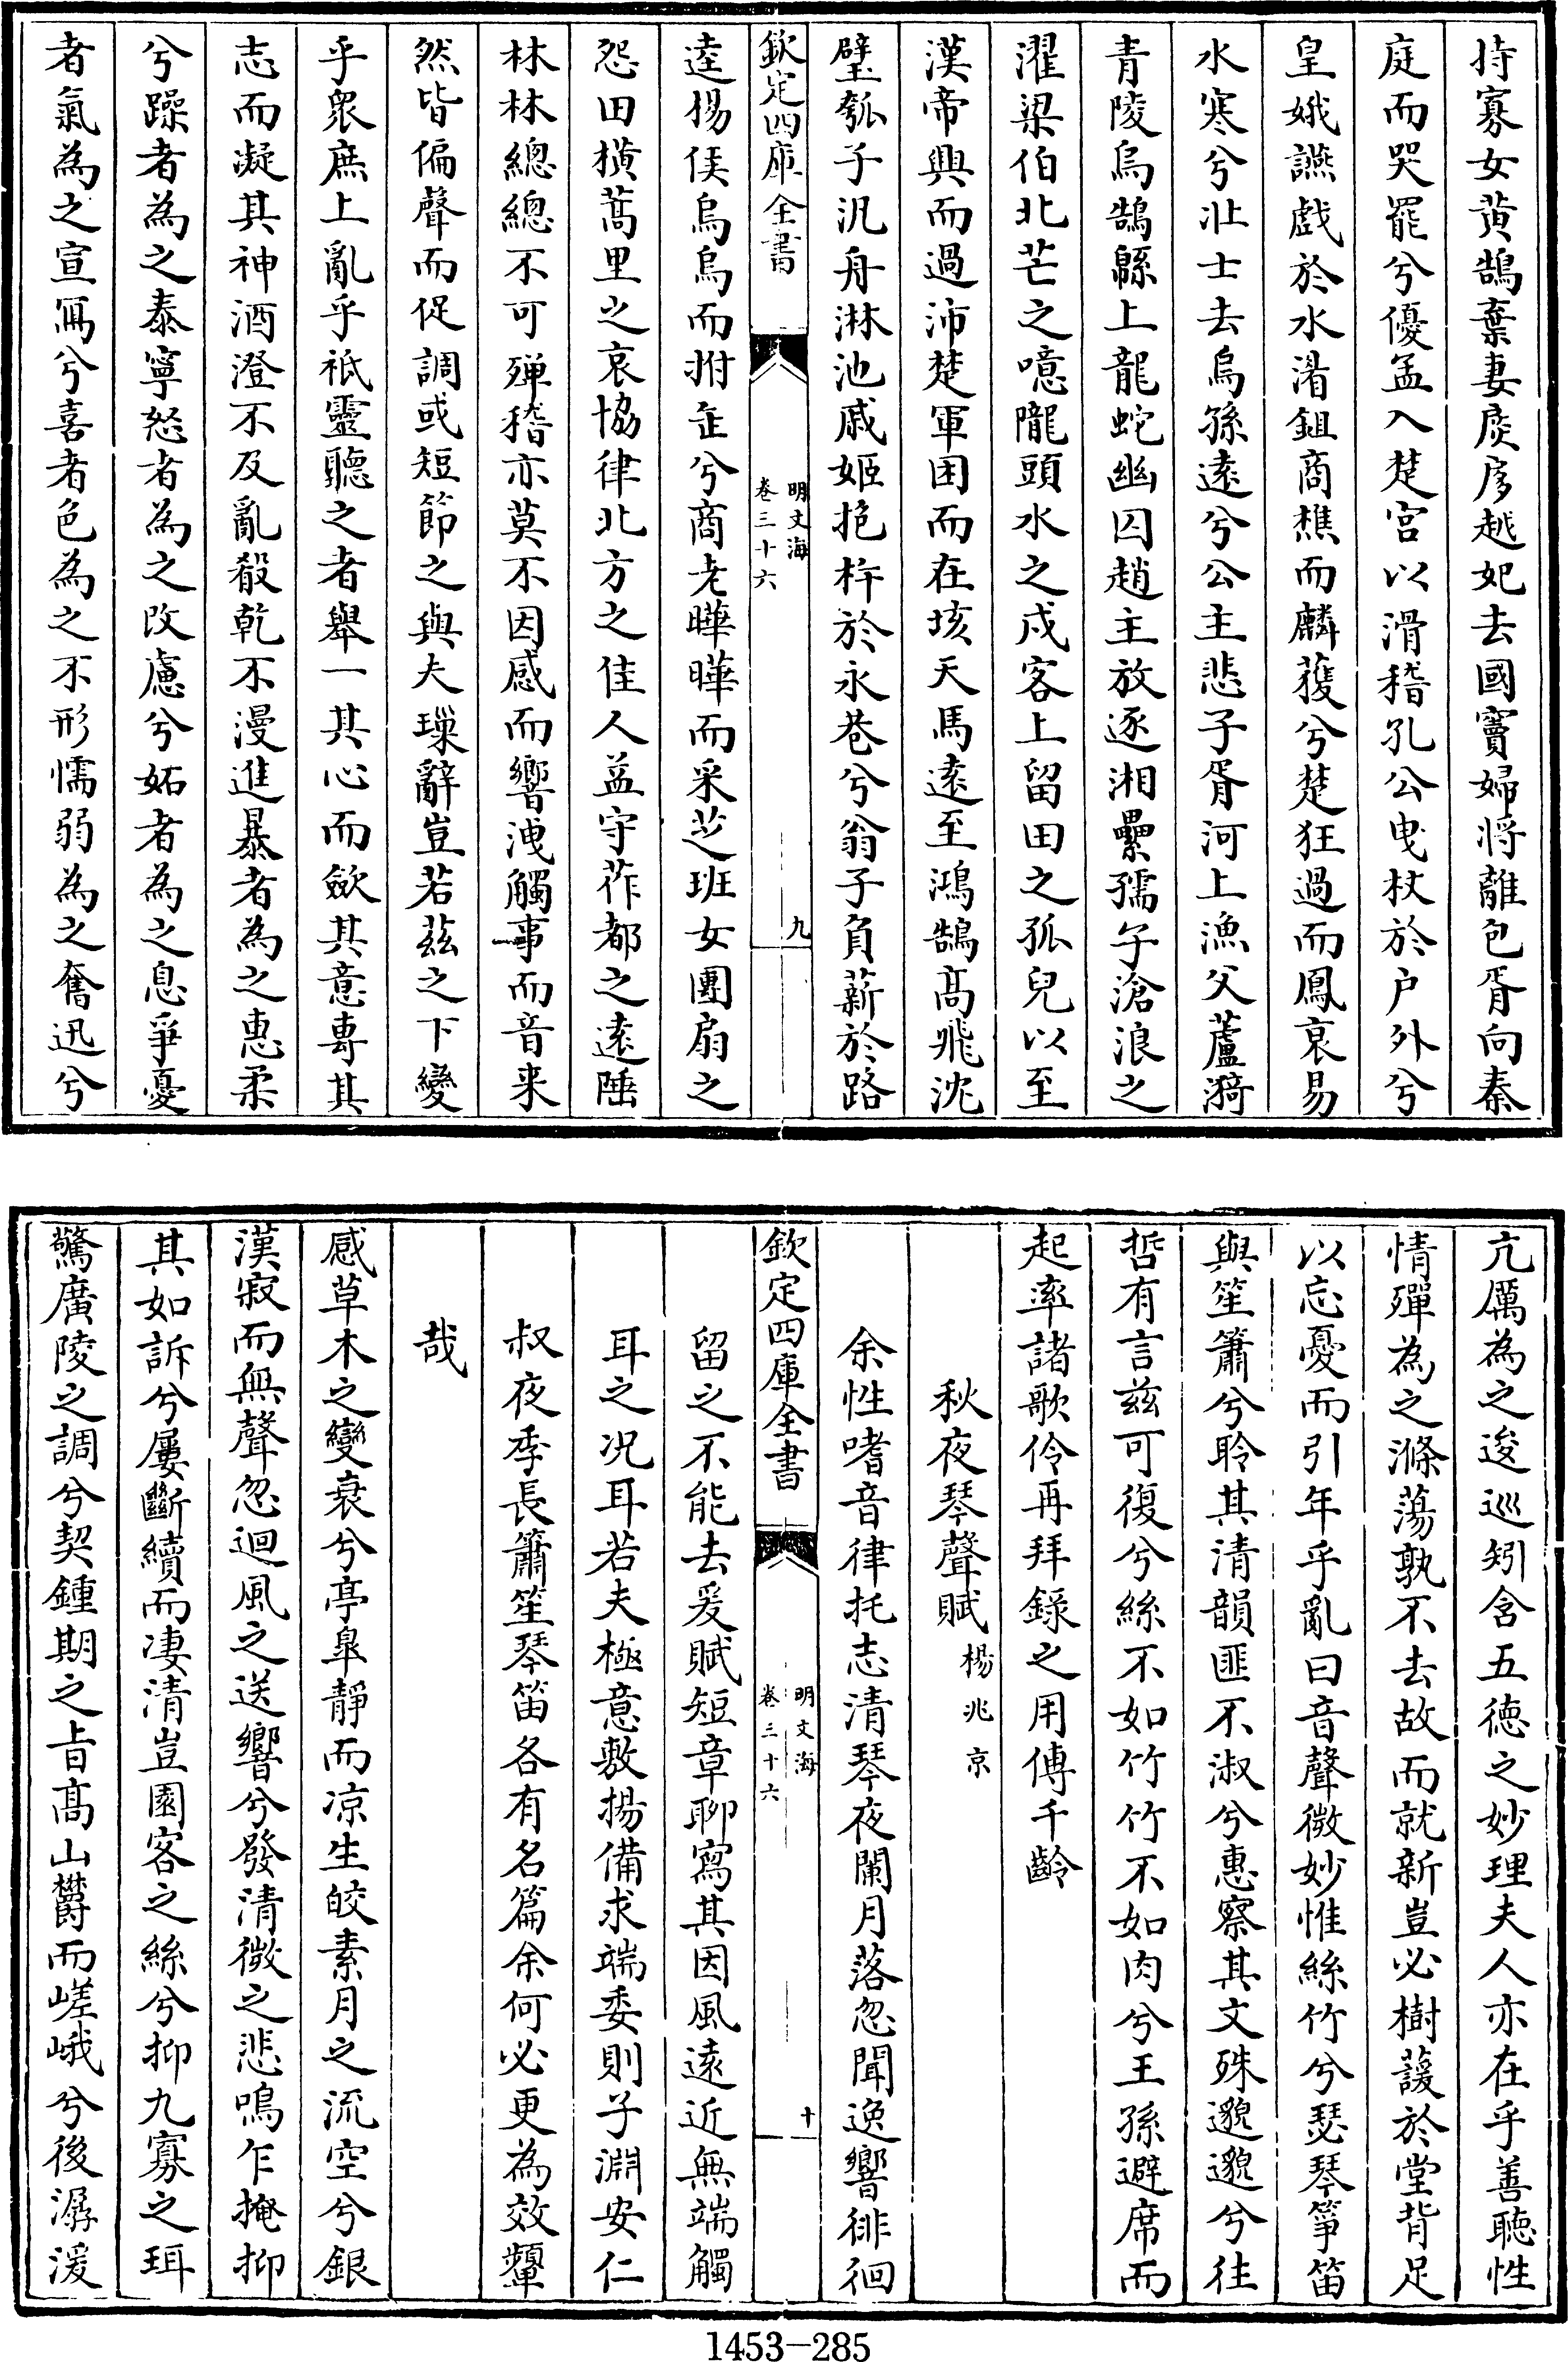 持寡女黄鵠棄妻扊扅越妃去國竇婦將離包胥向秦
庭而哭罷兮優孟入楚宫以滑稽孔公曵杖於户外兮
皇娥讌戲於水渚鉏商樵而麟獲兮楚狂過而鳳哀易
水寒兮壮士去烏孫遠兮公主悲子胥河上漁父蘆漪
青陵烏鵲緜上龍蛇幽囚趙主放逐湘纍孺子滄浪之
濯梁伯北芒之噫隴頭水之戍客上留田之孤兒以至
漢帝興而過沛楚軍困而在垓天馬遠至鴻鵠髙飛沈
璧瓠子汎舟淋池戚姬抱杵於永巷兮翁子負薪於路
欽定四庫全書
明文海
卷三十六
九
逵楊侯烏烏而拊缶兮商老曄曄而采芝班女團扇之
怨田横蒿里之哀協律北方之佳人益守莋都之遠陲
林林總總不可殫稽亦莫不因感而響洩觸事而音来
然皆偏聲而促調或短節之與夫璅辭豈若兹之下變
乎衆庶上亂乎祇靈聽之者舉一其心而斂其意專其
志而凝其神酒澄不及亂殽乾不漫進暴者為之惠柔
兮躁者為之泰寧怒者為之改慮兮妬者為之息爭憂
者氣為之宣冩兮喜者色為之不形懦弱為之奮迅兮
亢厲為之逡巡矧含五徳之妙理夫人亦在乎善聽性
情殫為之滌蕩孰不去故而就新豈必樹蘐於堂背足
以忘憂而引年乎亂曰音聲微妙惟絲竹兮瑟琴箏笛
與笙簫兮聆其清韻匪不淑兮惠察其文殊邈邈兮往
哲有言兹可復兮絲不如竹竹不如肉兮王孫避席而
起率諸歌伶再拜錄之用傳千齡
秋夜琴聲賦 楊兆京
余性嗜音律托志清琴夜闌月落忽聞逸響徘徊
欽定四庫全書
明文海
卷三十六
十
留之不能去爰賦短章聊寫其因風遠近無端觸
耳之况耳若夫極意敷揚備求端委則子淵安仁
叔夜季長簫笙琴笛各有名篇余何必更為效顰
哉
感草木之變衰兮亭臯靜而凉生皎素月之流空兮銀
漢寂而無聲忽迴風之送響兮發清微之悲鳴乍掩抑
其如訴兮屢斷續而凄清豈園客之絲兮抑九寡之珥
驚廣陵之調兮契鍾期之㫖髙山欝而嵯峨兮後潺湲
1453-285